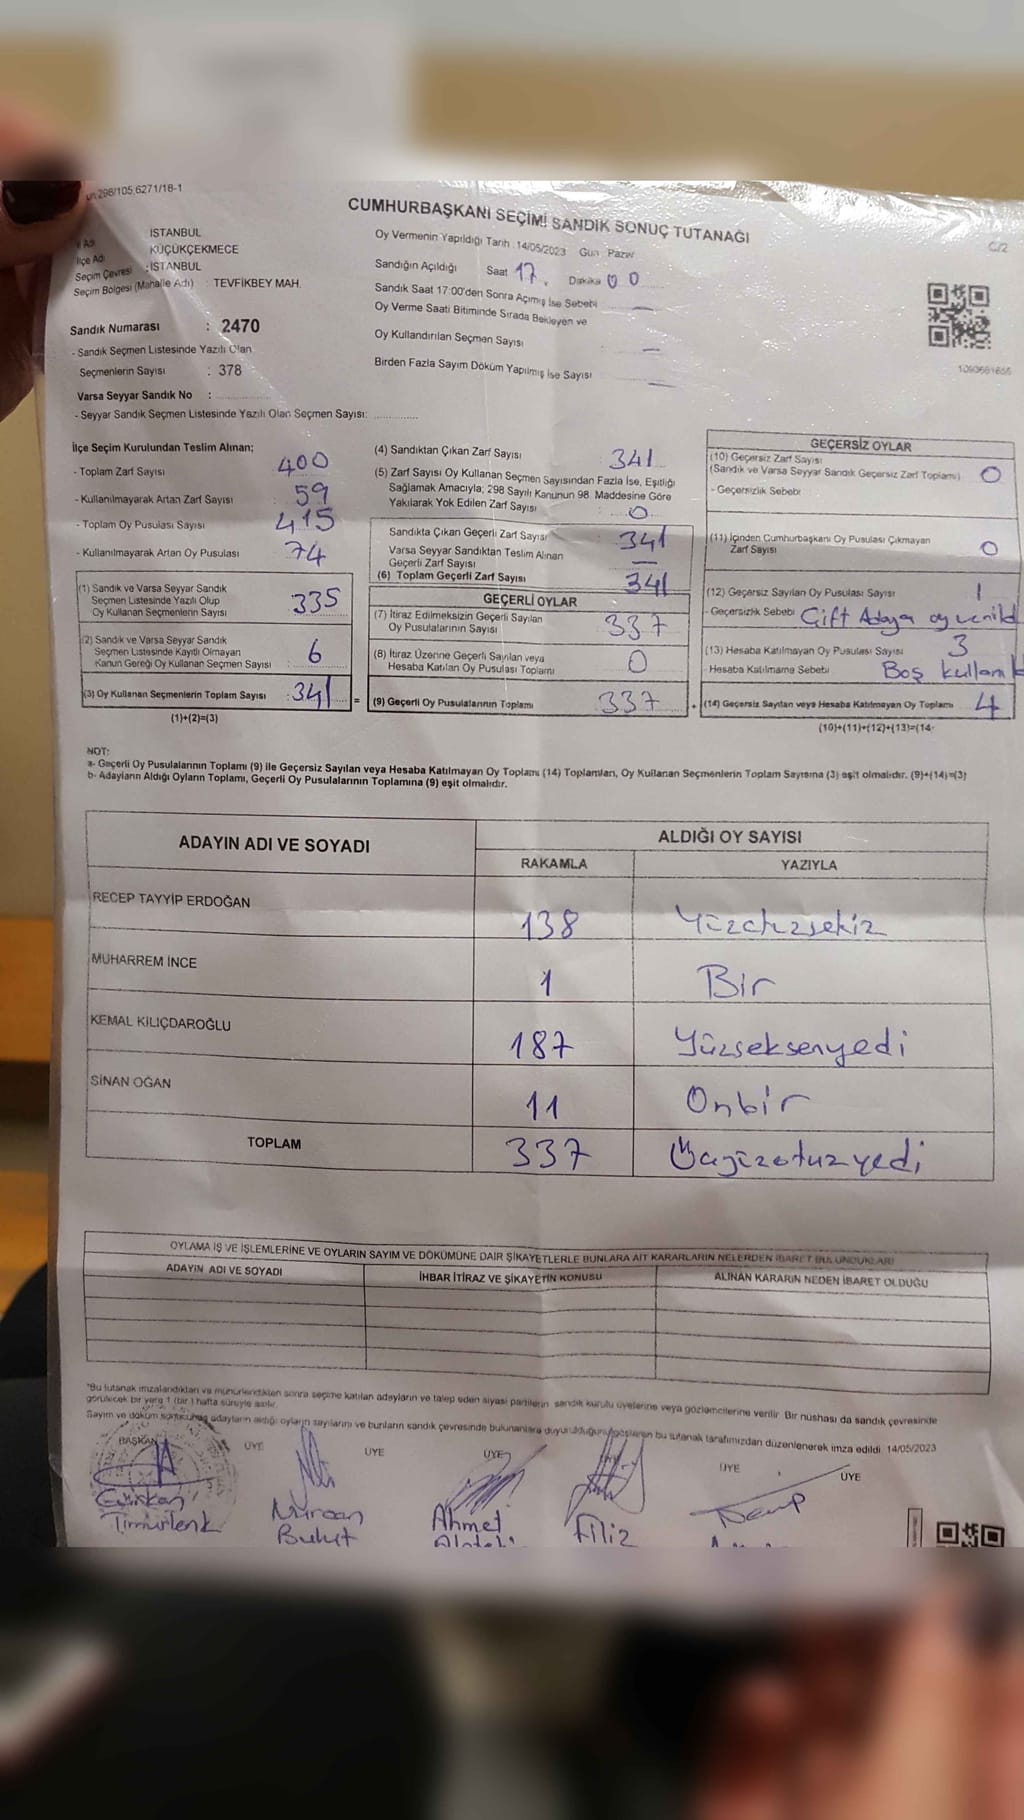 298/105,6271/18-1
CUMHURBAŞKANI SEÇİMİ SANDIK SONUÇ TUTANAĞI
C/2
İl Adı İSTANBUL
İlçe Adı KÜÇÜKÇEKMECE
Seçim Çevresi : İSTANBUL
Seçim Bölgesi (Mahalle Adı) : TEVFİKBEY MAH.
Sandık Numarası : 2470
- Sandık Seçmen Listesinde Yazılı Olan
Seçmenlerin Sayısı : 378
Varsa Seyyar Sandık No :
- Seyyar Sandık Seçmen Listesinde Yazılı Olan Seçmen Sayısı:
Oy Vermenin Yapıldığı Tarih : 14/05/2023 Gün Pazar
Sandığın Açıldığı Saat 17 Dakika 00
Sandık Saat 17:00'den Sonra Açımış İse Sebebi
Oy Verme Saati Bitiminde Sırada Bekleyen ve
Oy Kullandırılan Seçmen Sayısı —
Birden Fazla Sayım Döküm Yapılmış İse Sayısı —
İlçe Seçim Kurulundan Teslim Alınan;
- Toplam Zarf Sayısı 400
- Kullanılmayarak Artan Zarf Sayısı 59
- Toplam Oy Pusulası Sayısı 415
- Kullanılmayarak Artan Oy Pusulası 74
(1) Sandık ve Varsa Seyyar Sandık
Seçmen Listesinde Yazılı Olup
Oy Kullanan Seçmenlerin Sayısı : 335
(2) Sandık ve Varsa Seyyar Sandık
Seçmen Listesinde Kayıtlı Olmayan
Kanun Gereği Oy Kullanan Seçmen Sayısı : 6
(3) Oy Kullanan Seçmenlerin Toplam Sayısı : 341 =
(1)+(2)=(3)
(4) Sandıktan Çıkan Zarf Sayısı 341
(5) Zarf Sayısı Oy Kullanan Seçmen Sayısından Fazla İse, Eşitliği
Sağlamak Amacıyla; 298 Sayılı Kanunun 98. Maddesine Göre
Yakılarak Yok Edilen Zarf Sayısı : 0
Sandıkta Çıkan Geçerli Zarf Sayısı 341
Varsa Seyyar Sandıktan Teslim Alınan
Geçerli Zarf Sayısı —
(6) Toplam Geçerli Zarf Sayısı 341
GEÇERLİ OYLAR
(7) İtiraz Edilmeksizin Geçerli Sayılan
Oy Pusulalarının Sayısı 337
(8) İtiraz Üzerine Geçerli Sayılan veya
Hesaba Katılan Oy Pusulası Toplamı 0
(9) Geçerli Oy Pusulalarının Toplamı 337 +
GEÇERSİZ OYLAR
(10) Geçersiz Zarf Sayısı
(Sandık ve Varsa Seyyar Sandık Geçersiz Zarf Toplamı) 0
- Geçersizlik Sebebi
(11) İçinden Cumhurbaşkanı Oy Pusulası Çıkmayan
Zarf Sayısı 0
(12) Geçersiz Sayılan Oy Pusulası Sayısı 1
- Geçersizlik Sebebi Çift Adaya oy
(13) Hesaba Katılmayan Oy Pusulası Sayısı 3
Hesaba Katılmama Sebebi Boş
(14) Geçersiz Sayılan veya Hesaba Katılmayan Oy Toplamı 4
(10)+(11)+(12)+(13)=(14
NOT:
a- Geçerli Oy Pusulalarının Toplamı (9) ile Geçersiz Sayılan veya Hesaba Katılmayan Oy Toplamı (14) Toplamları, Oy Kullanan Seçmenlerin Toplam Sayısına (3) eşit olmalıdır. (9)+(14)=(3)
b- Adayların Aldığı Oyların Toplamı, Geçerli Oy Pusulalarının Toplamına (9) eşit olmalıdır.
ADAYIN ADI VE SOYADI ALDIĞI OY SAYISI
RAKAMLA YAZIYLA
RECEP TAYYİP ERDOĞAN 138 Yüzotuzsekiz
MUHARREM İNCE 1 Bir
KEMAL KILIÇDAROĞLU 187 Yüzseksenyedi
SİNAN OĞAN 11 Onbir
TOPLAM 337 Üçyüzotuzyedi
OYLAMA İŞ VE İŞLEMLERİNE VE OYLARIN SAYIM VE DÖKÜMÜNE DAİR ŞİKAYETLERLE BUNLARA AİT KARARLARIN NELERDEN İBARET BULUNDUKLARI
ADAYIN ADI VE SOYADI İHBAR İTİRAZ VE ŞİKAYETİN KONUSU ALINAN KARARIN NEDEN İBARET OLDUĞU
*Bu tutanak imzalandıktan ve mühürlendikten sonra seçime katılan adayların ve talep eden siyasi partilerin sandık kurulu üyelerine veya gözlemcilerine verilir. Bir nüshası da sandık çevresinde
görülecek bir yere 1 (bir) hafta süreyle asılır.
Sayım ve döküm sonucunda adayların aldığı oyların sayılarını ve bunların sandık çevresinde bulunanlara duyurulduğunu gösteren bu tutanak tarafımızdan düzenlenerek imza edildi. 14/05/2023
BAŞKAN ÜYE ÜYE ÜYE ÜYE ÜYE
Gürkan Nurcan Ahmet Filiz
Timurlenk Bulut